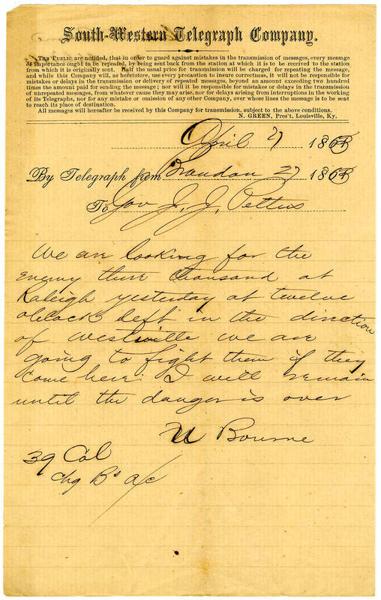 South-Western Telegraph Company.
THE PUBLIC are notified, that in order to guard against mistakes in the transmission of messages, every message
of importance ought to be repeated, by being sent back from the station at which it is to be received to the station
from which it is originally sent. Half the usual price for transmission will be charged for repeating the message,
and while this Company will, as heretofore, use every precaution to insure correctness, it will not be responsible for
mistakes or delays in the transmission or delivery of repeated messages, beyond an amount exceeding two hundred
times the amount paid for sending the message; nor will it be responsible for mistakes or delays in the transmission of
unrepeated messages, from whatever cause they may arise, nor for delays arising from interruptions in the working
of its Telegraphs, nor for any mistake or omission of any other Company, over whose lines the message is to be sent
to reach its place of destination.
All messages will hereafter be received by this Company for transmission, subject to the above conditions.
N. GREEN, Pres't, Louisville, Ky.
April 27 1863
By Telegraph from Brandon 27 1863
To Gov J. J. Pettus
We are looking for the
enemy there thousand at
Raleigh yesterday at twelve
oclock left in the direction
of Westville we are
going to fight them if they
come here I will remain
until the danger is over
Bourne
39 Col
chg Bs a/c